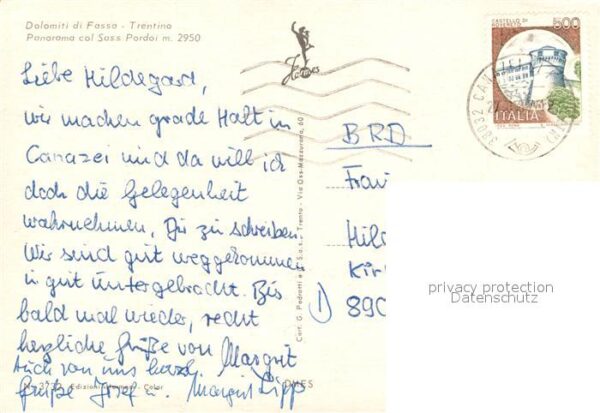 Dolomiti di Fassa - Trentino
Panorama col Sass Pordoi m. 2950
Liebe Hildegard,
wir machen grade Halt in
Canazei und da will ich
doch die Gelegenheit
wahrnehmen, Dir zu schreiben.
Wir sind gut weggekommen
in gut untergebracht. Bis
bald mal wieder, recht
herzliche Grüße von Margrit
Auch von uns herzl.
Grüße Josef u. Margrit Lipps
3732 Edizioni Color
DMES
Cart. G. Pedrotti Trento - Via Oss Mazzurana, 60
CASTELLO DI
ROVERETO
500
ITALIA
38032
BRD
Frau
Hild
Kir
D
890
privacy protection
Datenschutz